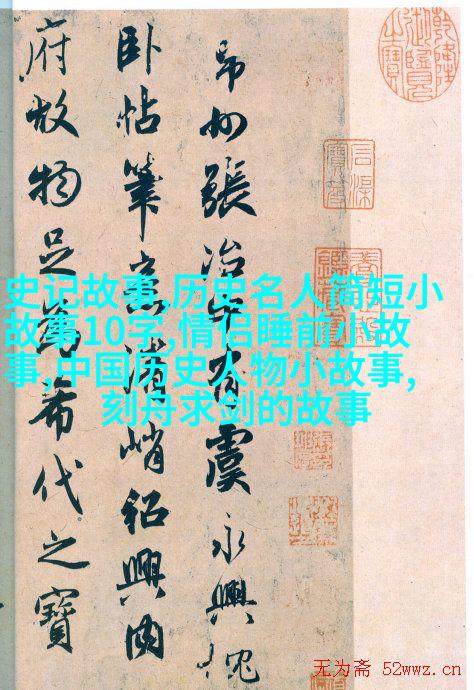 州張治中有虞永興枕
卧帖筆意清峭紹興内
府故物足為希代之寶
史记故事,历史名人简短小
故事10字,情侣睡前小故
事,中国历史人物小故事,
刻舟求剑的故事
无为斋 52wwz.cn